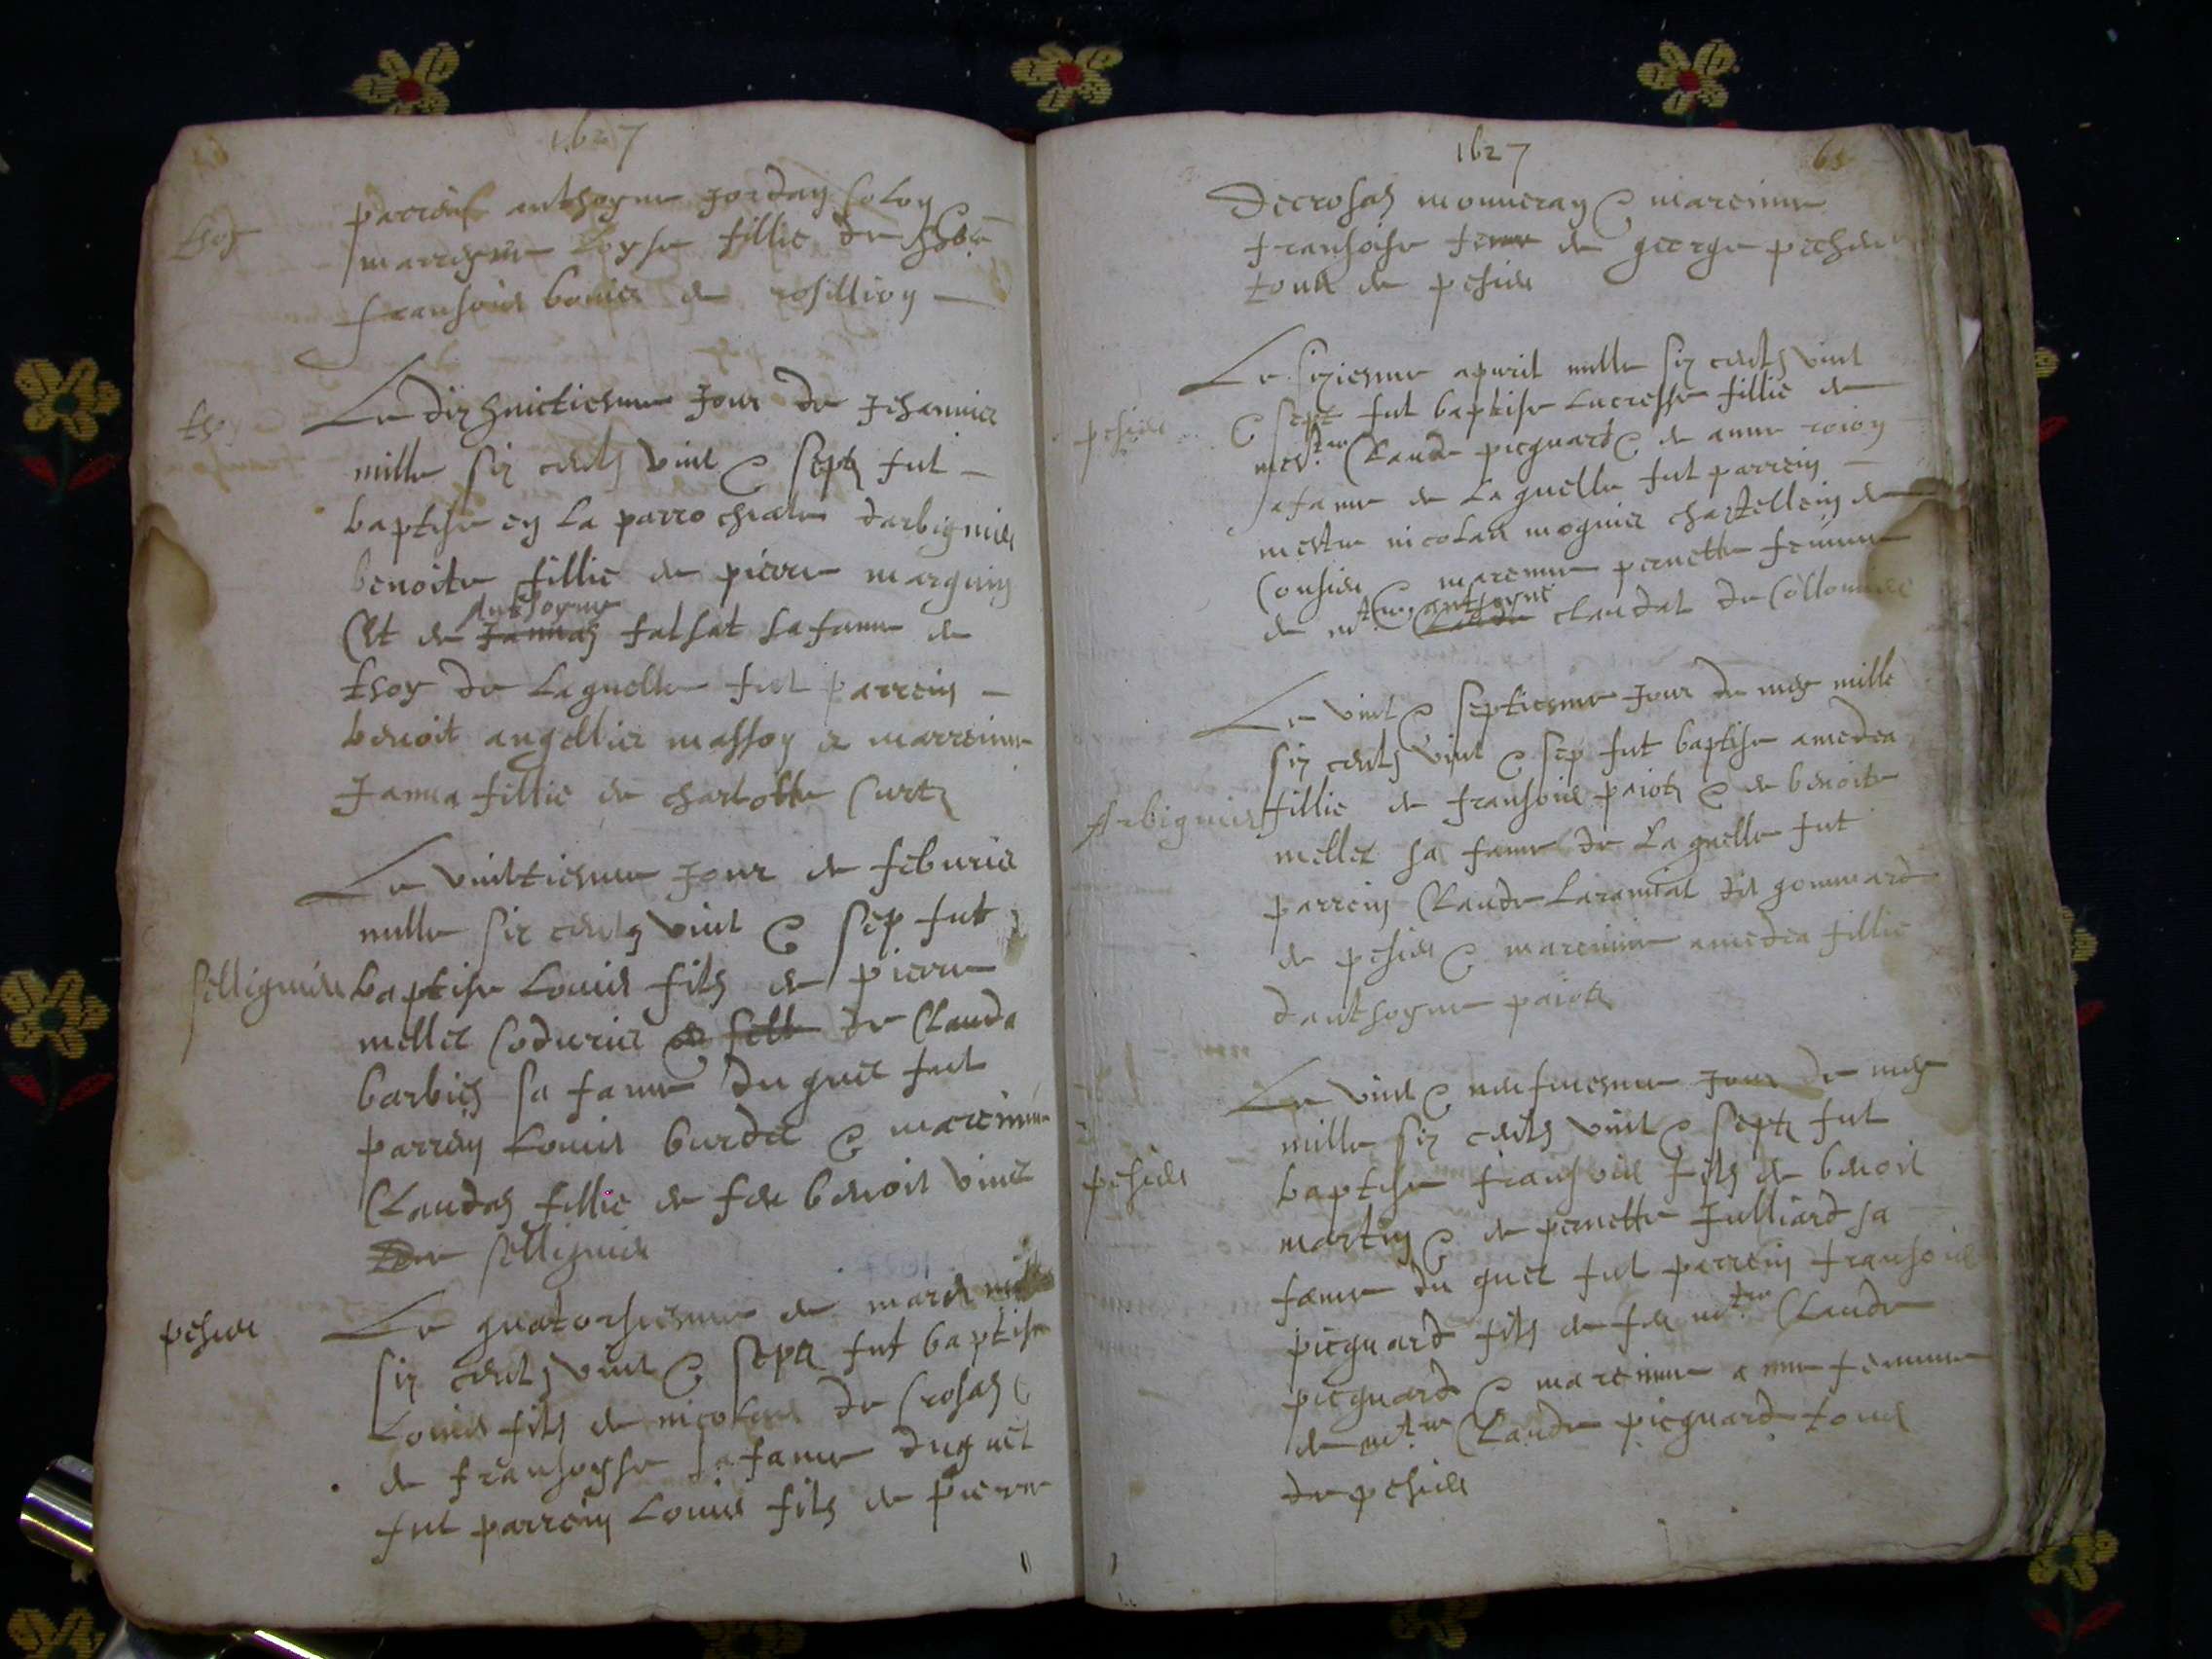 1627
parrein anthoyne Jordan colon
marreyne Loyse fillie de
fransois bonier de rosillion
thoy
Le dix huictiesme Jour de Jehanvier
mille six cents vint & sept fut
baptise en la parrochiale darbignieu
benoite fillie de pierre marguin
Et de Janna anthoyne falsat sa fame de
thoy de laquelle fut parrein
benoit angellier masson et marreinne
Janna fillie de charlotte Curtz
Le vintiesme Jour de feburier
mille six cents vint & sep fut
Sellignieu baptise Louis fils de pierre
mellet Codurier & sell de Clauda
barbier sa fame du quel fut
parrein Louis burdet & mareinne
Claudaz fillie de feu benoit vinet
De sellignieu
pesieu Le quatorsiesme de mars mille
six cents vint & sept fut baptise
Louis fils de nicolas de Crosaz &
de fransoyse sa fame duquel
fut parrein Louis fils de pierre
1627
Decrosaz monneray & mareinne
fransoise feme de george pecheu
tous de pesieu
Le siziesme apvril mille six cents vint
pesieu & sept fut baptise Lucresse fillie de
mestre Claude picquard & de anne roion
sa fame de laquelle fut parrein
mestre nicolas mognier chastellein de
Consieu & mareinne pernette femme
de mtre Claude anthoyne claudat de Collomieu
Le vint & septiesme Jour de mey mille
six cents vint & sep fut baptise amedea
Arbignieu fillie de fransois paiotz & de benoite
mellet sa fame de laquelle fut
parrein Claude Laramiat dit gonnard
de pesieu & mareinne amedea fillie
danthoyne paiotz
Le vint & neufviesme Jour de mey
mille six cents vint & septz fut
pesieu baptise fransois fils de benoit
martin & de pernette Julliard sa
fame du quel fut parrein fransois
picquard fils de feu mtre Claude
picquard & mareinne anne femme
de mtre Claude picquard tous
de pesieu